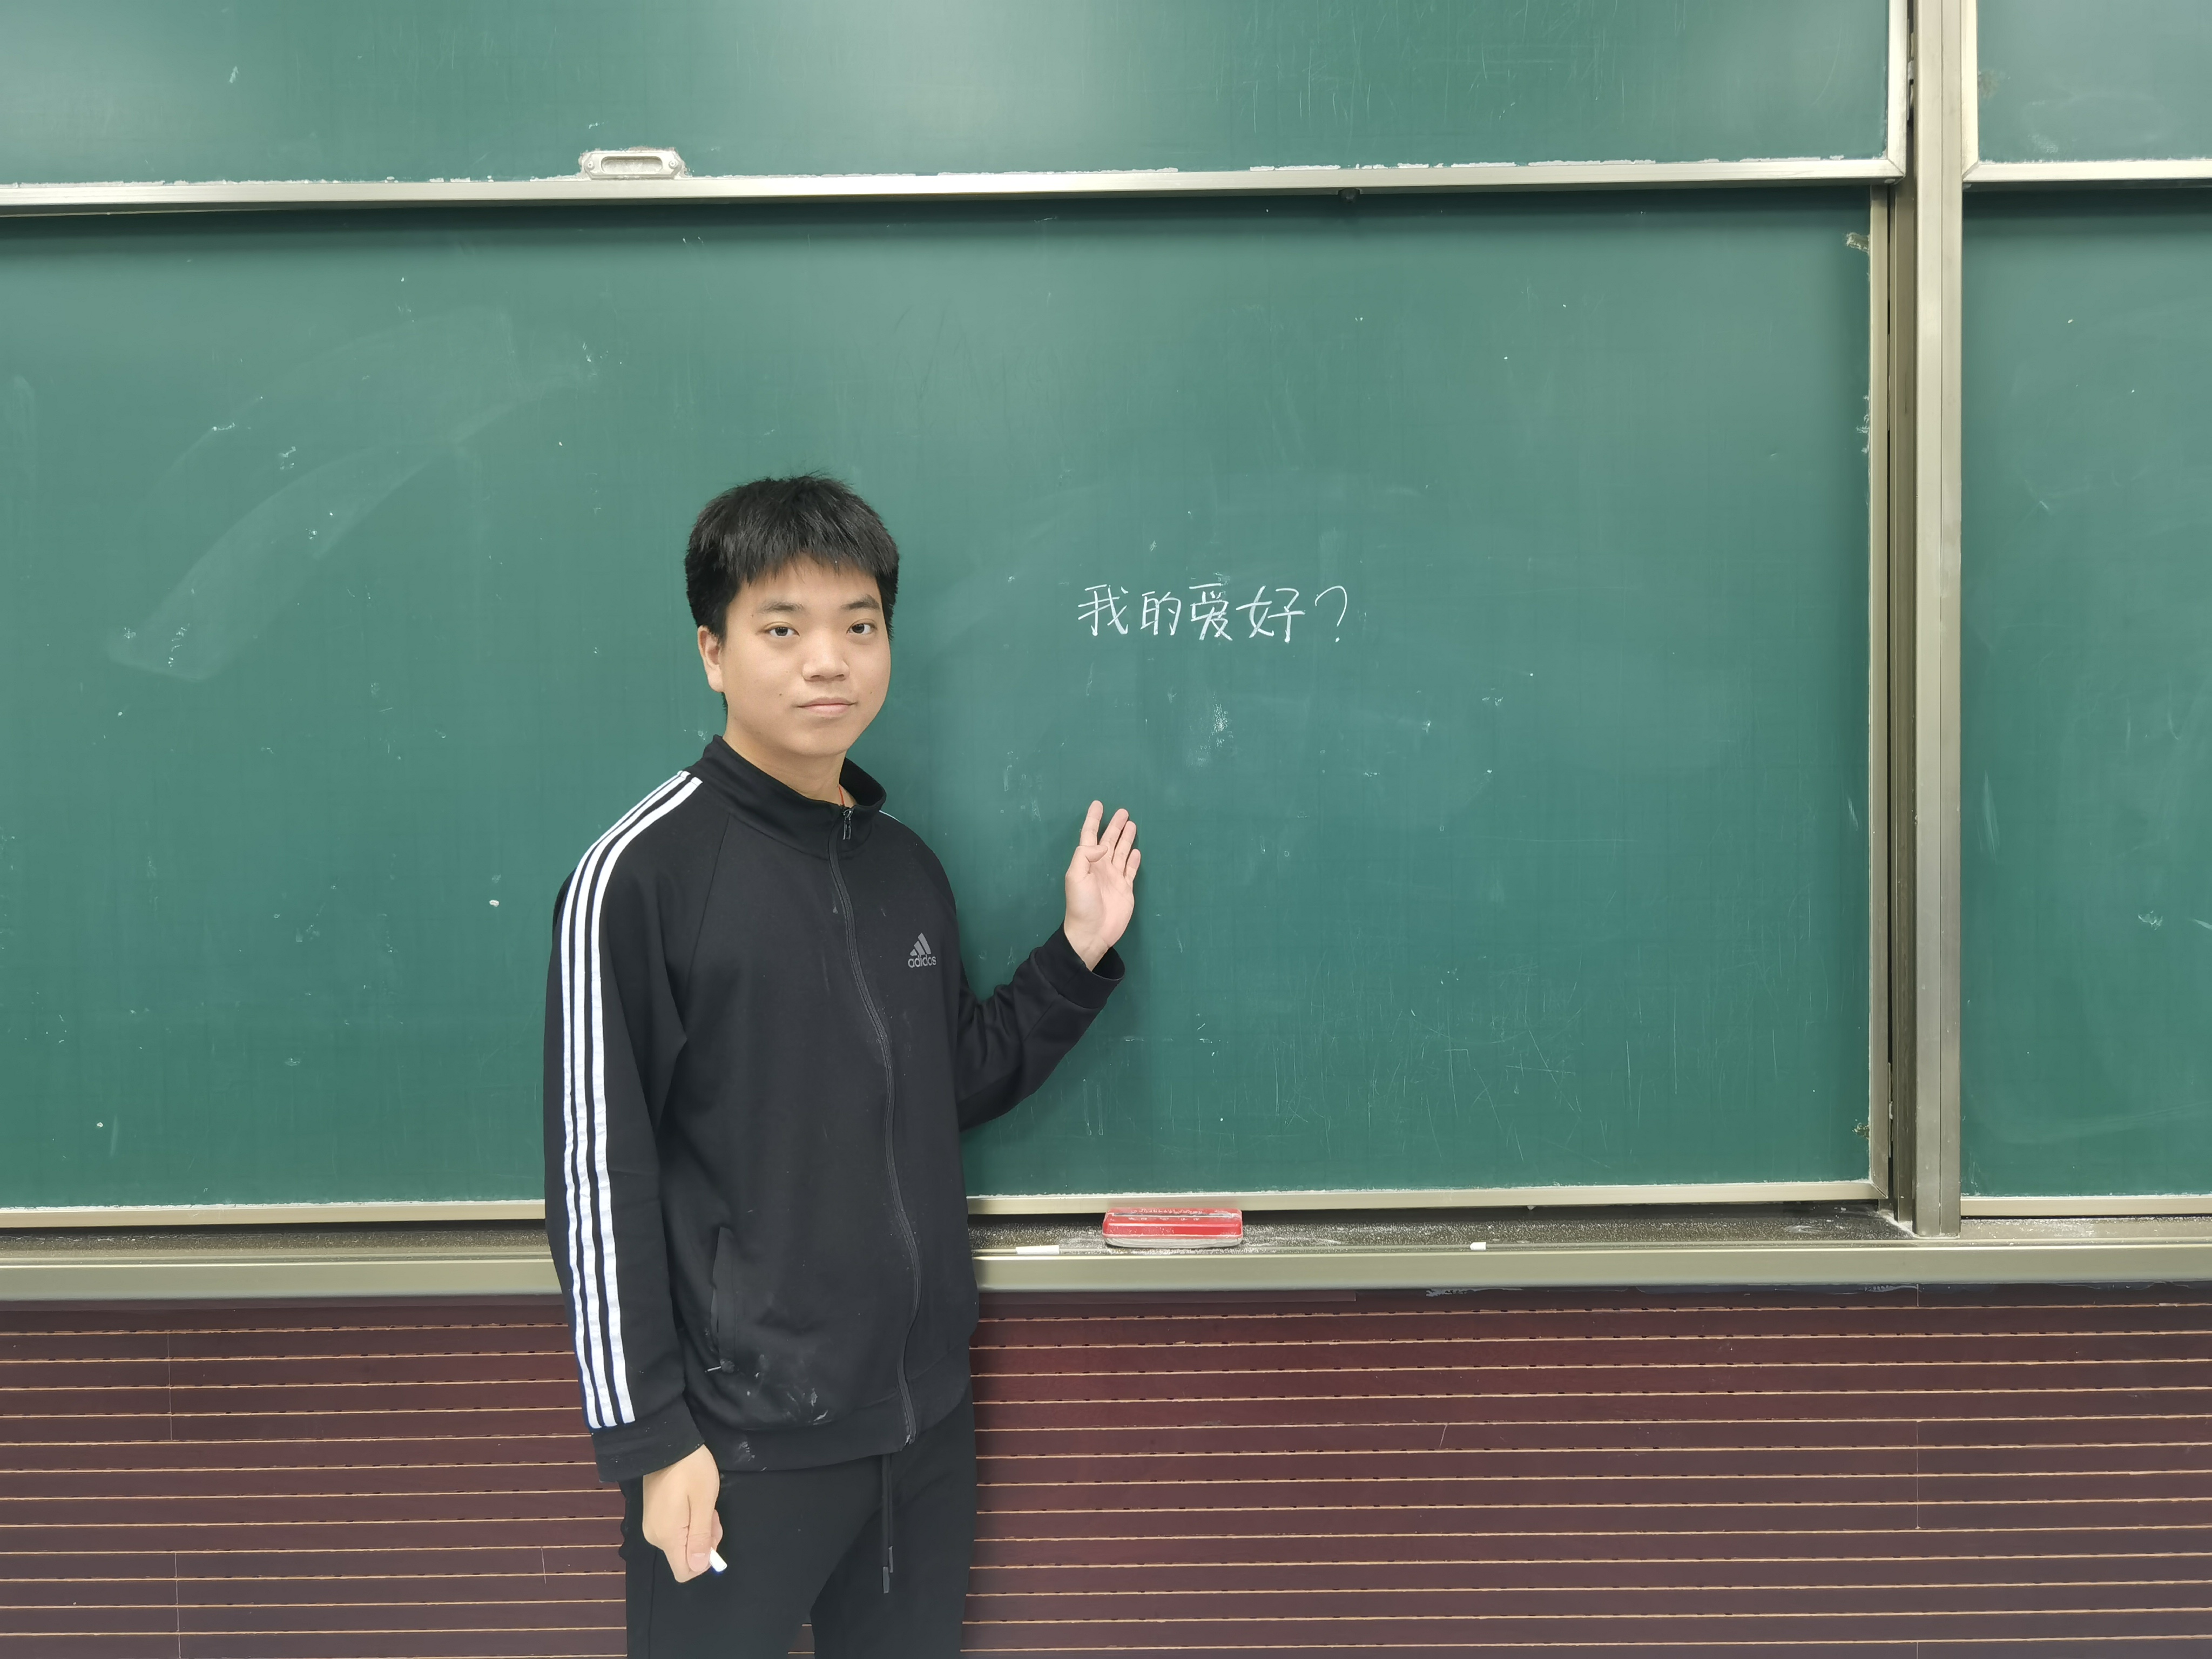 我的爱好？
adidas